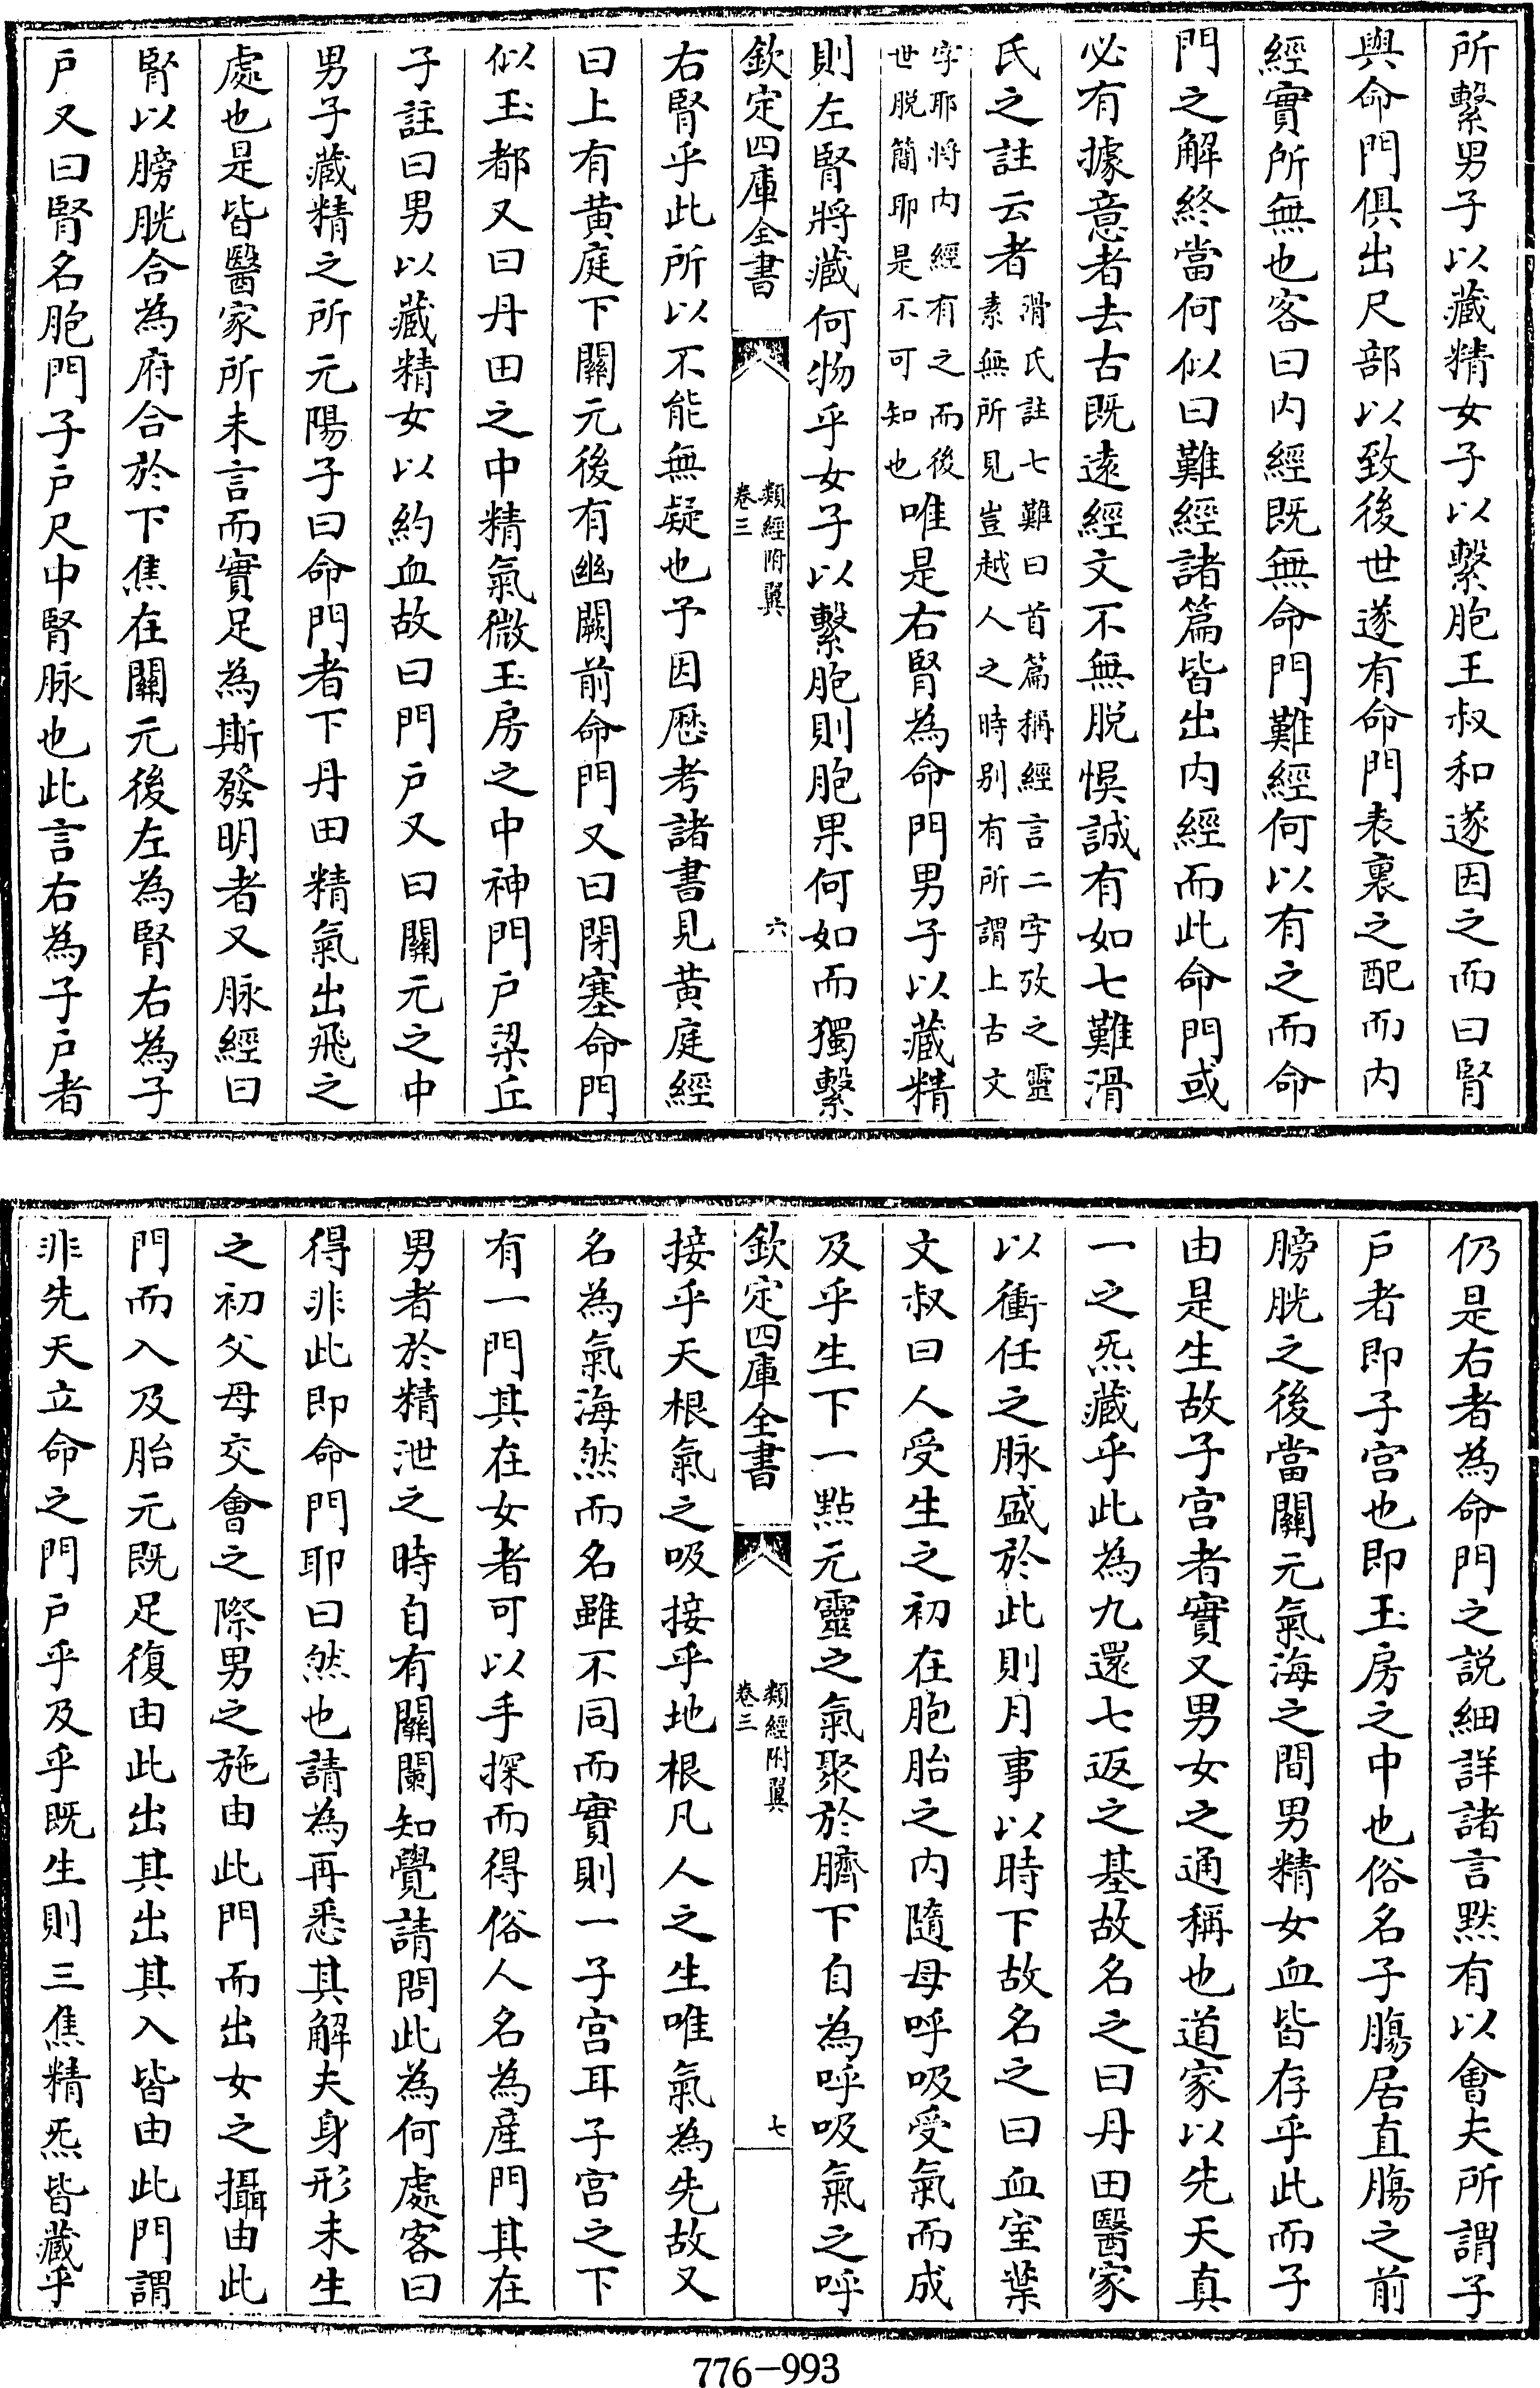 所繫男子以藏精女子以繫胞王叔和遂因之而曰腎
與命門俱出尺部以致後世遂有命門表裏之配而内
經實所無也客曰内經既無命門難經何以有之而命
門之解終當何似曰難經諸篇皆出内經而此命門或
必有據意者去古既逺經文不無脱悞誠有如七難滑
氏之註云者滑氏註七難曰首篇稱經言二字攷之靈
素無所見豈越人之時别有所謂上古文
字耶將内經有之而後
世脱簡耶是不可知也唯是右腎為命門男子以藏精
則左腎將藏何物乎女子以繫胞則胞果何如而獨繫
欽定四庫全書
類經附翼
卷三
六
右腎乎此所以不能無疑也予因歴考諸書見黄庭經
曰上有黄庭下關元後有幽闕前命門又曰閉塞命門
似玉都又曰丹田之中精氣微玉房之中神門户梁丘
子註曰男以藏精女以約血故曰門户又曰關元之中
男子藏精之所元陽子曰命門者下丹田精氣出飛之
處也是皆醫家所未言而實足為斯發明者又脉經曰
腎以膀胱合為府合於下焦在關元後左為腎右為子
户又曰腎名胞門子户尺中腎脉也此言右為子户者
仍是右者為命門之説細詳諸言黙有以會夫所謂子
户者即子宫也即玉房之中也俗名子膓居直膓之前
膀胱之後當關元氣海之間男精女血皆存乎此而子
由是生故子宫者實又男女之通稱也道家以先天真
一之炁藏乎此為九還七返之基故名之曰丹田醫家
以衝任之脉盛於此則月事以時下故名之曰血室葉
文叔曰人受生之初在胞胎之内隨母呼吸受氣而成
及乎生下一點元靈之氣聚於臍下自為呼吸氣之呼
欽定四庫全書
類經附翼
卷三
七
接乎天根氣之吸接乎地根凡人之生唯氣為先故又
名為氣海然而名雖不同而實則一子宫耳子宫之下
有一門其在女者可以手探而得俗人名為産門其在
男者於精泄之時自有關闌知覺請問此為何處客曰
得非此即命門耶曰然也請為再悉其解夫身形未生
之初父母交會之際男之施由此門而出女之攝由此
門而入及胎元既足復由此出其出其入皆由此門謂
非先天立命之門户乎及乎既生則三焦精炁皆藏乎
776-993